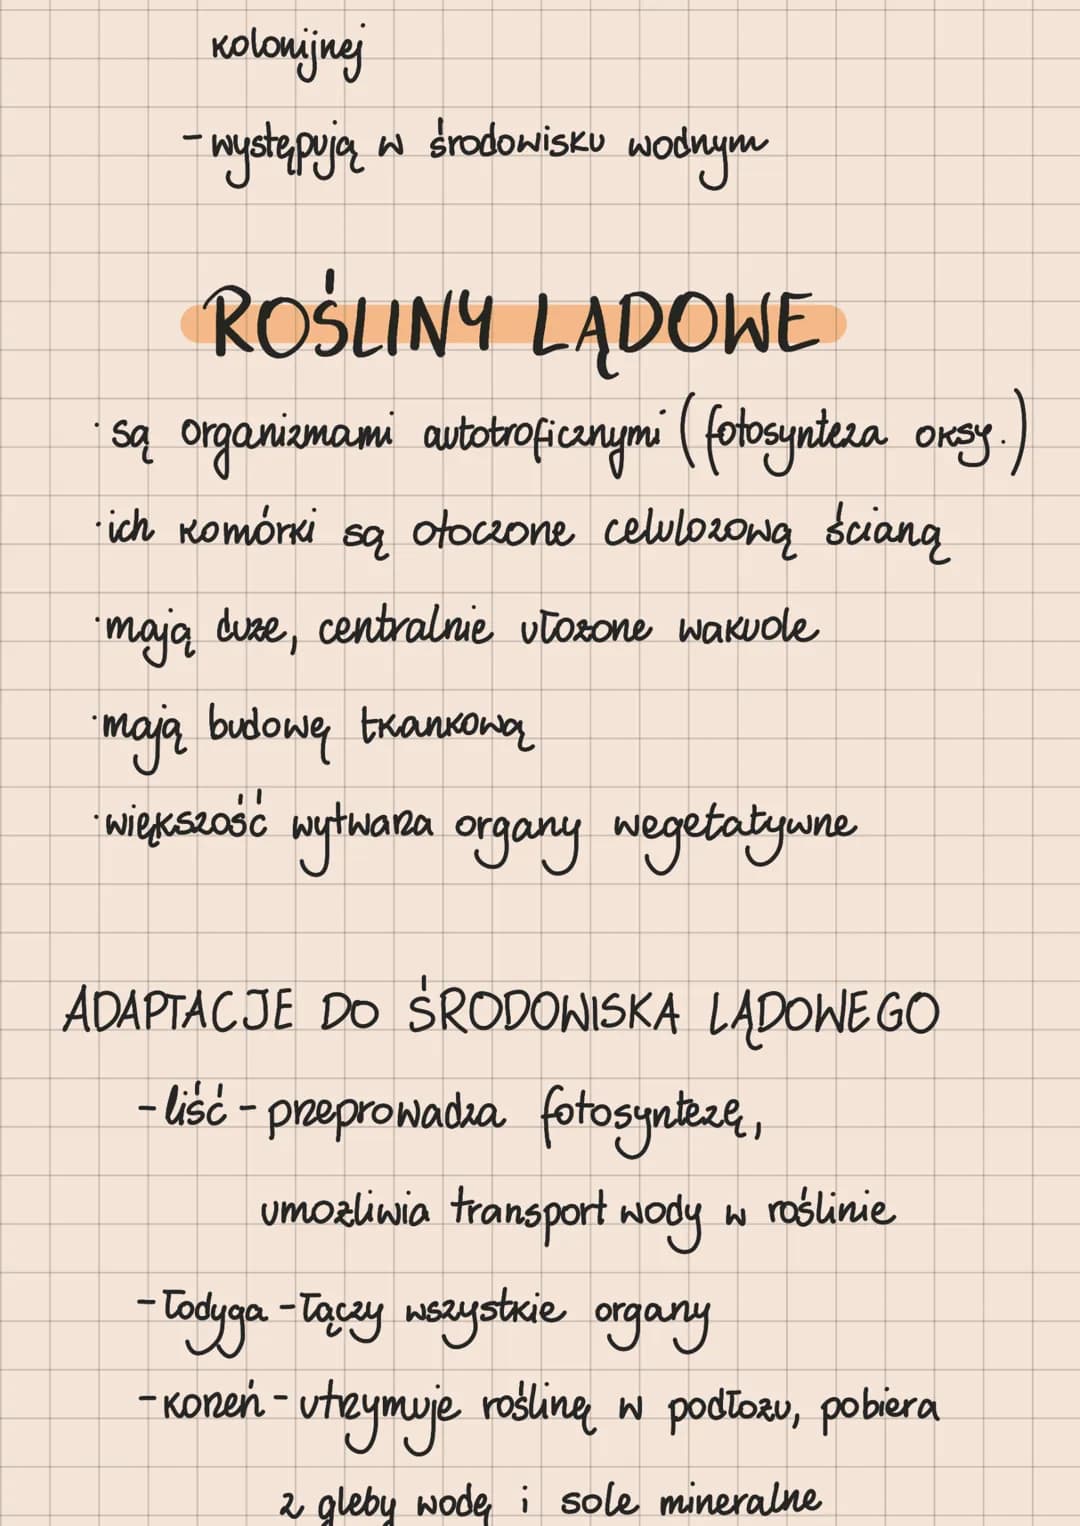 kolonijnej
- występują w środowisku wodnym
ROŚLINY LĄDOWE
· są organizmami autotroficznymi (fotosynteza oksy.)
· ich komórki są otoczone celulozową ścianą
· mają duże, centralnie ułożone wakuole
· mają budowę tkankową
· większość wytwarza organy wegetatywne
ADAPTACJE DO ŚRODOWISKA LĄDOWEGO
- liść - przeprowadza fotosyntezę,
umożliwia transport wody w roślinie
- łodyga - łączy wszystkie organy
- korzeń - utrzymuje roślinę w podłożu, pobiera
z gleby wodę i sole mineralne